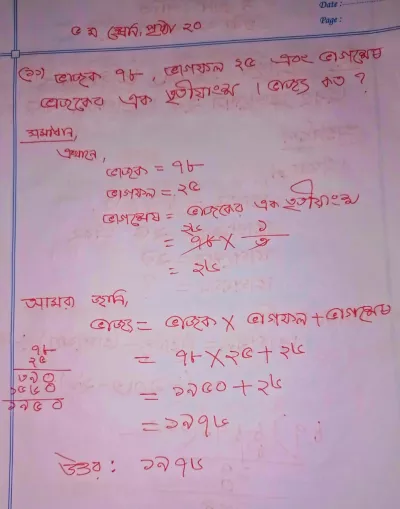 Date :
Page :
৫ ম শ্রেণি, পৃষ্ঠা ২০
(১১) ভাজক ৭৮, ভাগফল ২৫ এবং ভাগশেষ
ভাজকের এক তৃতীয়াংশ । ভাজ্য কত ?
সমাধান,
এখানে,
ভাজক = ৭৮
ভাগফল = ২৫
ভাগশেষ = ভাজকের এক তৃতীয়াংশ
২৬ ১
= ৭৮ × ৩
= ২৬
আমরা জানি,
ভাজ্য = ভাজক × ভাগফল + ভাগশেষ
= ৭৮ × ২৫ + ২৬
= ১৯৫০ + ২৬
= ১৯৭৬
৭৮
২৫
৩৯০
১৫৬০
১৯৫০
উত্তর : ১৯৭৬